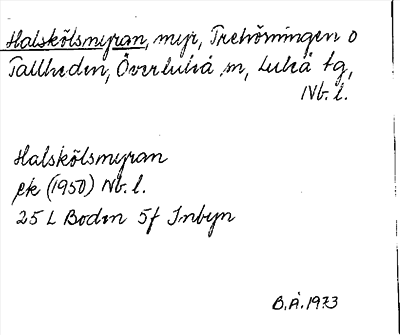 Halskölsmyran, myr, Trehörningen o
Tallheden, Överluleå sn, Luleå tg,
Nb. l.
Halskölsmyran
ek (1950) Nb. l.
25 L Boden 5f Inbyn
B.Å. 1973